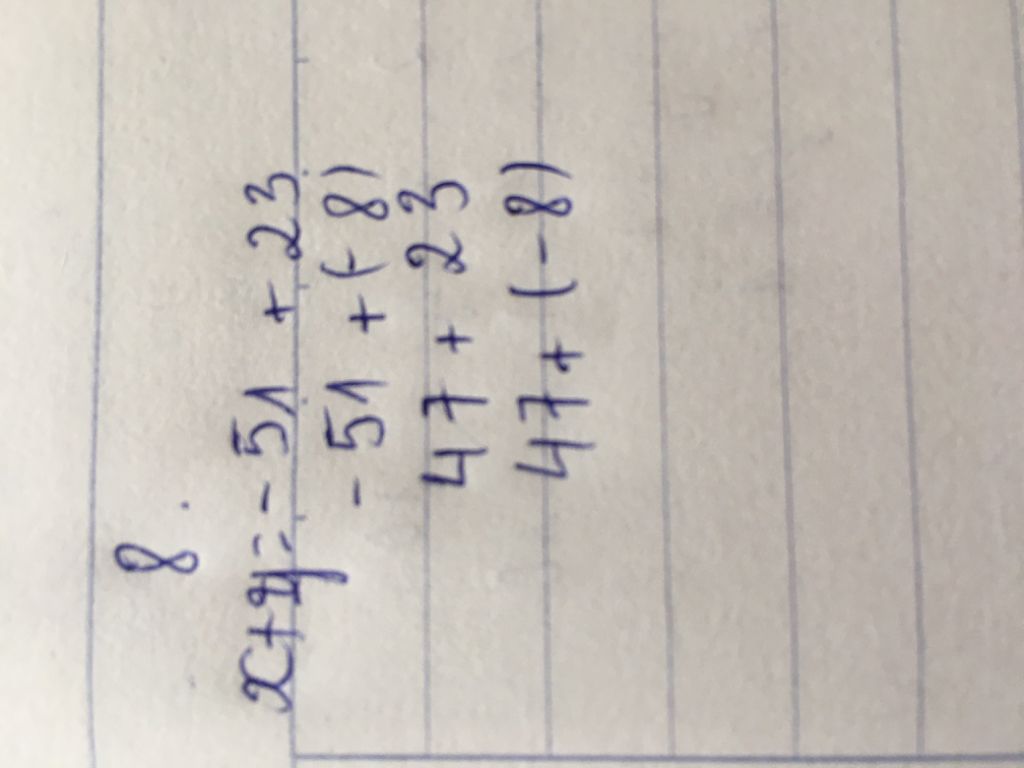 8.
x+y=-51 + 23
-51 + (-8)
47 + 23
47 + (-8)